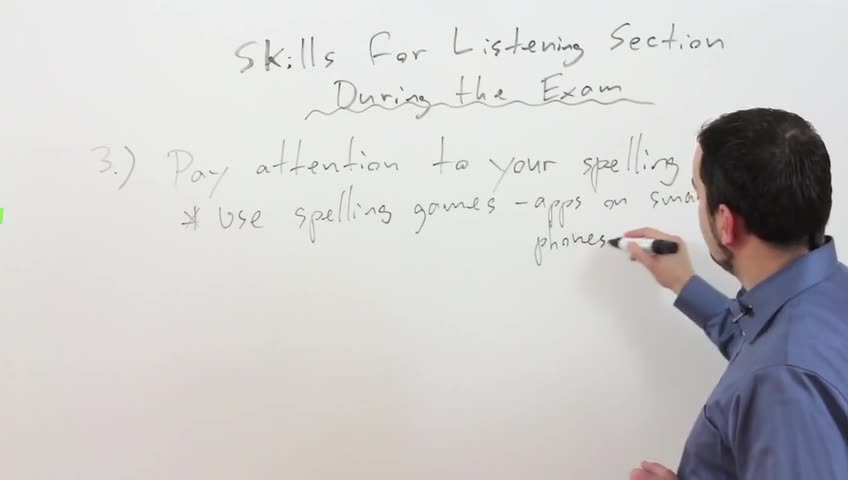 Skills For Listening Section
During the Exam
3.) Pay attention to your spelling
* Use spelling games - apps on sma
phones